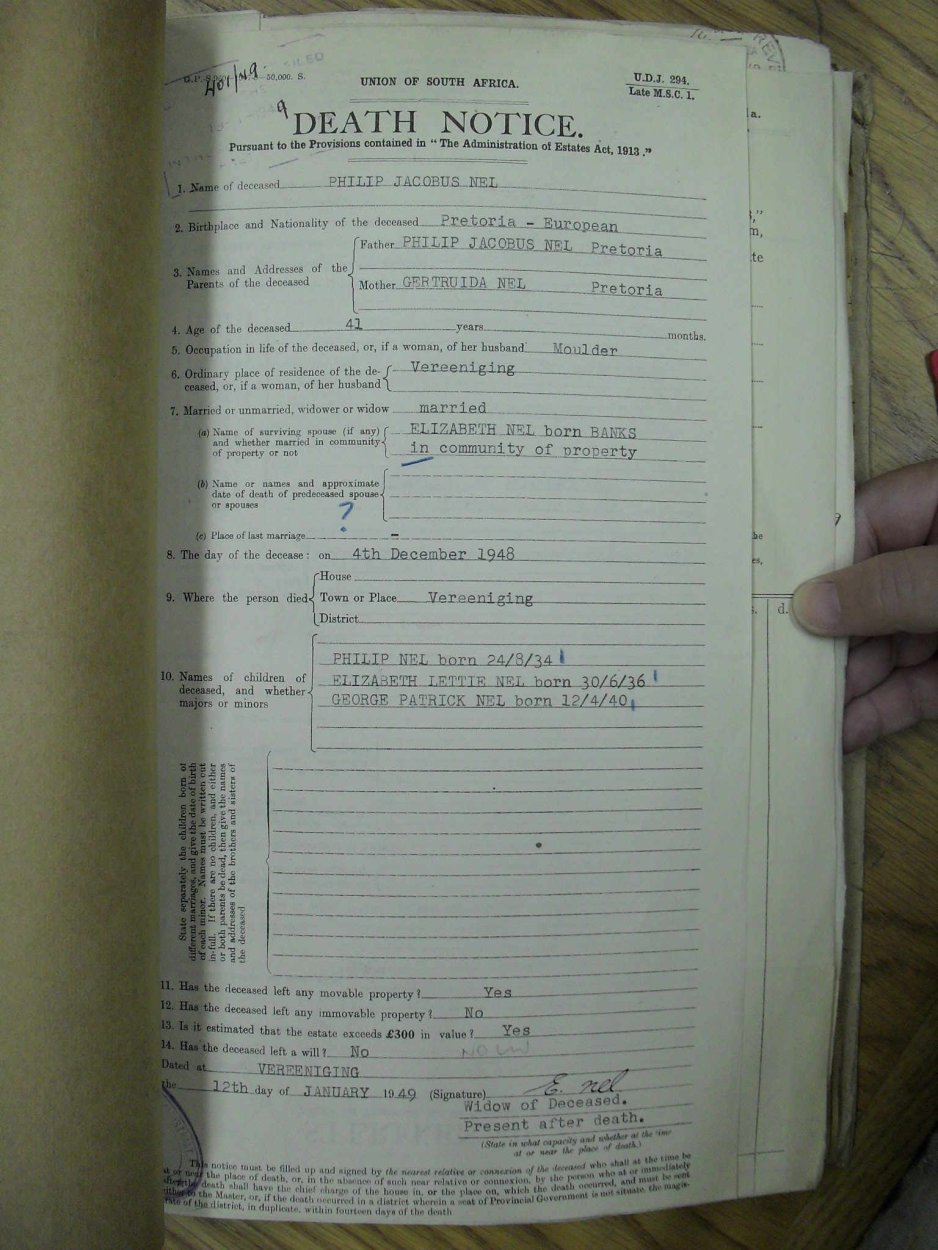 401/49.
50,000. S.
UNION OF SOUTH AFRICA.
U.D.J. 294.
Late M.S.C. 1.
DEATH NOTICE.
Pursuant to the Provisions contained in "The Administration of Estates Act, 1913."
1. Name of deceased PHILIP JACOBUS NEL
2. Birthplace and Nationality of the deceased Pretoria - European
3. Names and Addresses of the Parents of the deceased
Father PHILIP JACOBUS NEL Pretoria
Mother GERTRUIDA NEL Pretoria
4. Age of the deceased 41 years months.
5. Occupation in life of the deceased, or, if a woman, of her husband Moulder
6. Ordinary place of residence of the de-
ceased, or, if a woman, of her husband
Vereeniging
7. Married or unmarried, widower or widow married
(a) Name of surviving spouse (if any)
and whether married in community
of property or not
ELIZABETH NEL born BANKS
in community of property
(b) Name or names and approximate
date of death of predeceased spouse
or spouses
?
(c) Place of last marriage -
8. The day of the decease: on 4th December 1948
9. Where the person died
House
Town or Place Vereeniging
District
10. Names of children of
deceased, and whether
majors or minors
PHILIP NEL born 24/8/34
ELIZABETH LETTIE NEL born 30/6/36
GEORGE PATRICK NEL born 12/4/40
State separately the children born of
different marriages, and give the date of birth
of each minor. Names must be written out
in full. If there are no children, and either
or both parents be dead, then give the names
and addresses of the brothers and sisters of
the deceased
11. Has the deceased left any movable property? Yes
12. Has the deceased left any immovable property? No
13. Is it estimated that the estate exceeds £300 in value? Yes
14. Has the deceased left a will? No
Dated at VEREENIGING
the 12th day of JANUARY 1949 (Signature) E. nel
Widow of Deceased.
Present after death.
(State in what capacity and whether at the time
at or near the place of death.)
This notice must be filled up and signed by the nearest relative or connexion of the deceased who shall at the time be
at or near the place of death, or, in the absence of such near relative or connexion, by the person who at or immediately
after the death shall have the chief charge of the house in, or the place on, which the death occurred, and must be sent
either to the Master, or, if the death occurred in a district wherein a seat of Provincial Government is not situate, the magis-
trate of the district, in duplicate, within fourteen days of the death